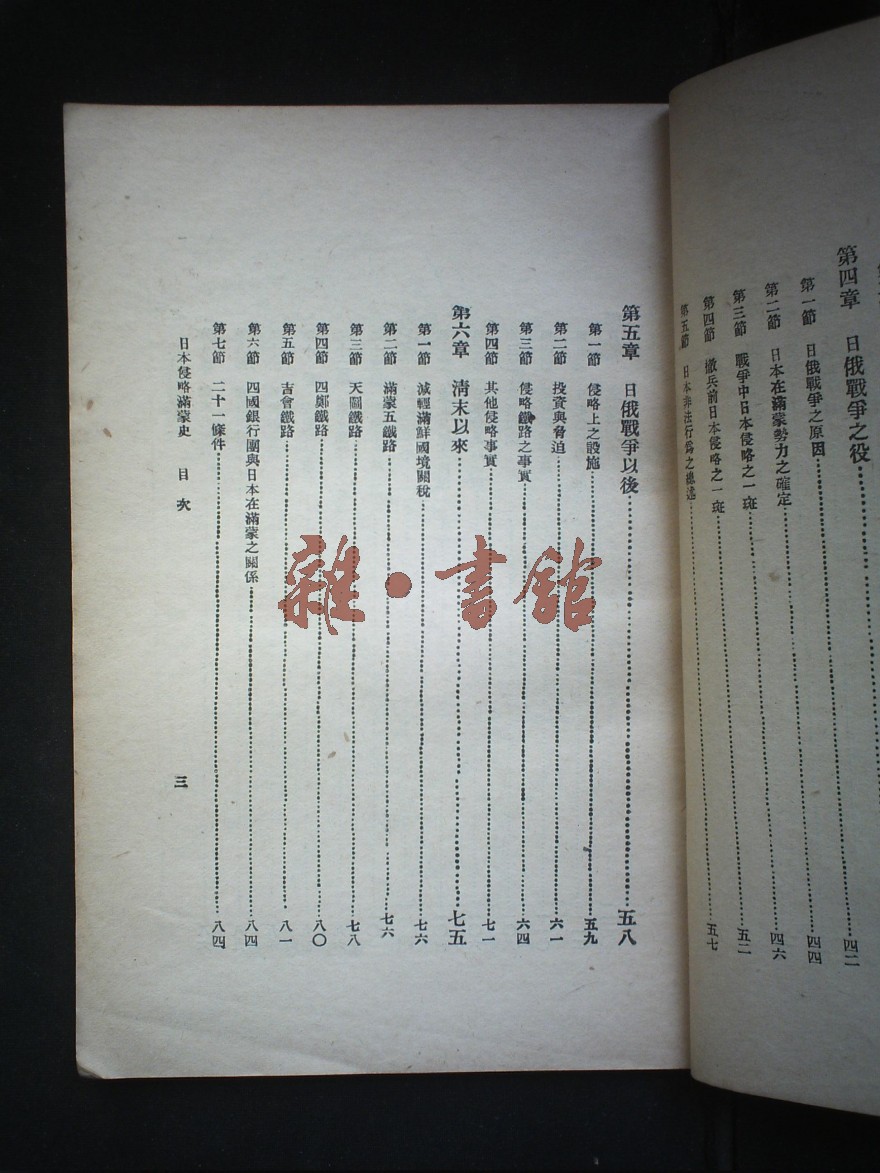 第四章　日俄戰爭之役……四二
第一節　日俄戰爭之原因……四四
第二節　日本在滿蒙勢力之確定……四六
第三節　戰爭中日本侵略之一斑……五二
第四節　撤兵前日本侵略之一斑……五七
第五節　日本非法行爲之總述
第五章　日俄戰爭以後……五八
第一節　侵略上之設施……五九
第二節　投資與脅迫……六一
第三節　侵略鐵路之事實……六四
第四節　其他侵略事實……七一
第六章　淸末以來……七五
第一節　減輕滿鮮國境關稅……七六
第二節　滿蒙五鐵路……七六
第三節　天圖鐵路……七八
第四節　四鄭鐵路……八〇
第五節　吉會鐵路……八一
第六節　四國銀行團與日本在滿蒙之關係……八四
第七節　二十一條件……八四
日本侵略滿蒙史　目次　三
雜·書館